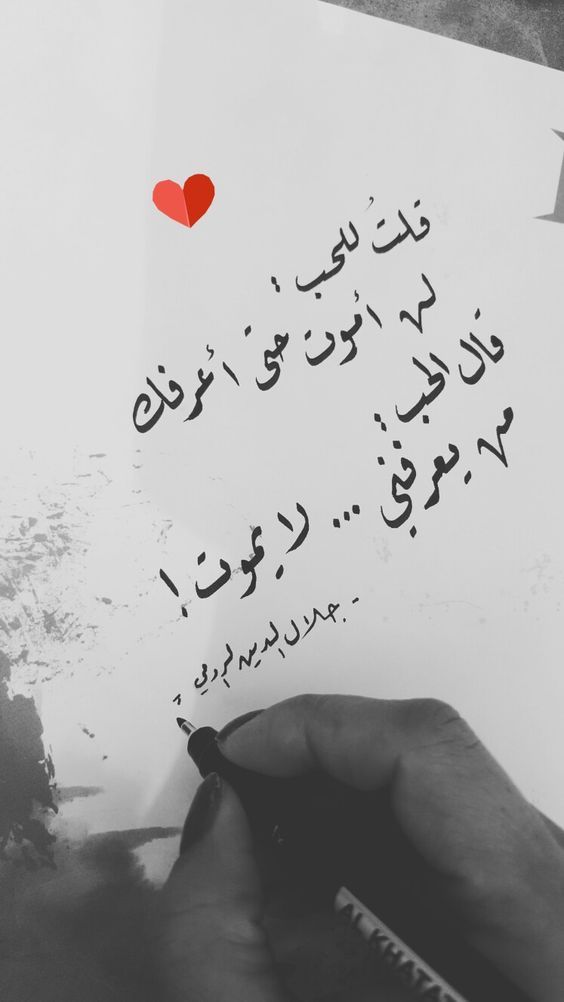 قلتُ للحب:
لن أموت حتى أعرفك
قال الحب:
من يعرفني ... لا يموت!
- جلال الدين الرومي -
AL KHATA